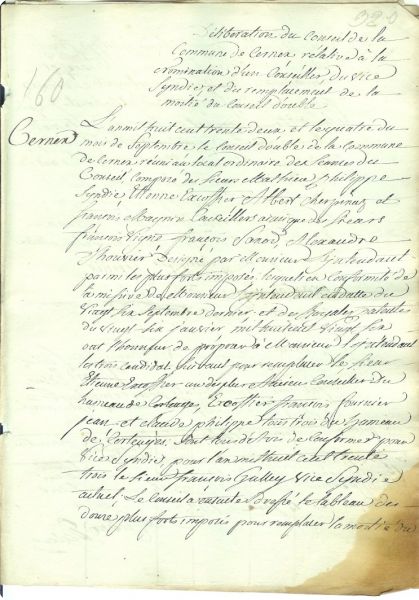 Délibération du Conseil de la
Commune de Cernex relative à la
nomination d'un Conseiller, du Vice
Syndic, et du remplacement de la
moitié du Conseil double
160
Cernex
L'an mil huit cent trente deux, et le quatre du
mois de Septembre le Conseil double de la commune
de Cernex réuni au local ordinaire des séances du
Conseil Composé des Sieurs Mathieu philippe
Syndic Etienne Excoffier Albert
françois Magnin Conseillers ainsi que des Sieurs
françois Vigne françois Alexandre
Désigné par Monsieur L'intendant
parmi les plus forts imposés lesquels en Conformité de
la missive de Monsieur L'intendant en datte du
Vingt six Septembre dernier, et des Royales patentes
du Vingt six janvier mil huit cent Vingt six
ont l'honneur de proposer à Monsieur L'intendant
les trois candidats suivant pour remplacer le Sieur
Etienne Excoffier un des plus anciens Conseiller du
hameau de Cortenges, Excoffier françois fournier
jean et claude philippe tous trois du hameau
de Cortenges. Sont tous d'avis de Confirmer pour
Vice Syndic, pour l'an mil huit cent trente
trois le Sieur françois Galley Vice Syndic
actuel. Le Conseil a ensuite dressé le tableau des
douze plus forts imposés pour remplacer la moitié du